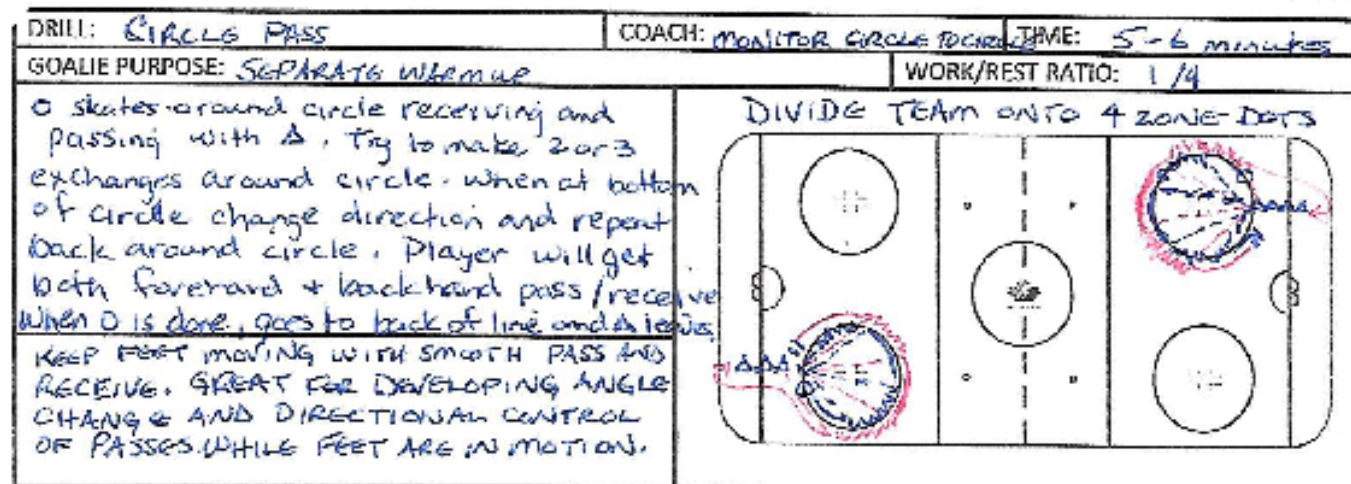 DRILL: CIRCLE PASS
COACH: MONITOR CIRCLE TO CIRCLE
TIME: 5-6 minutes
GOALIE PURPOSE: SEPARATE WARMUP
WORK/REST RATIO: 1/4
O skates around circle receiving and
passing with Δ. Try to make 2 or 3
exchanges around circle. When at bottom
of circle change direction and repeat
back around circle. Player will get
both forehand + backhand pass/receive
When O is done, goes to back of line and Δ leaves
KEEP FEET MOVING WITH SMOOTH PASS AND
RECEIVE. GREAT FOR DEVELOPING ANGLE
CHANGE AND DIRECTIONAL CONTROL
OF PASSES WHILE FEET ARE IN MOTION.
DIVIDE TEAM ONTO 4 ZONE-DOTS